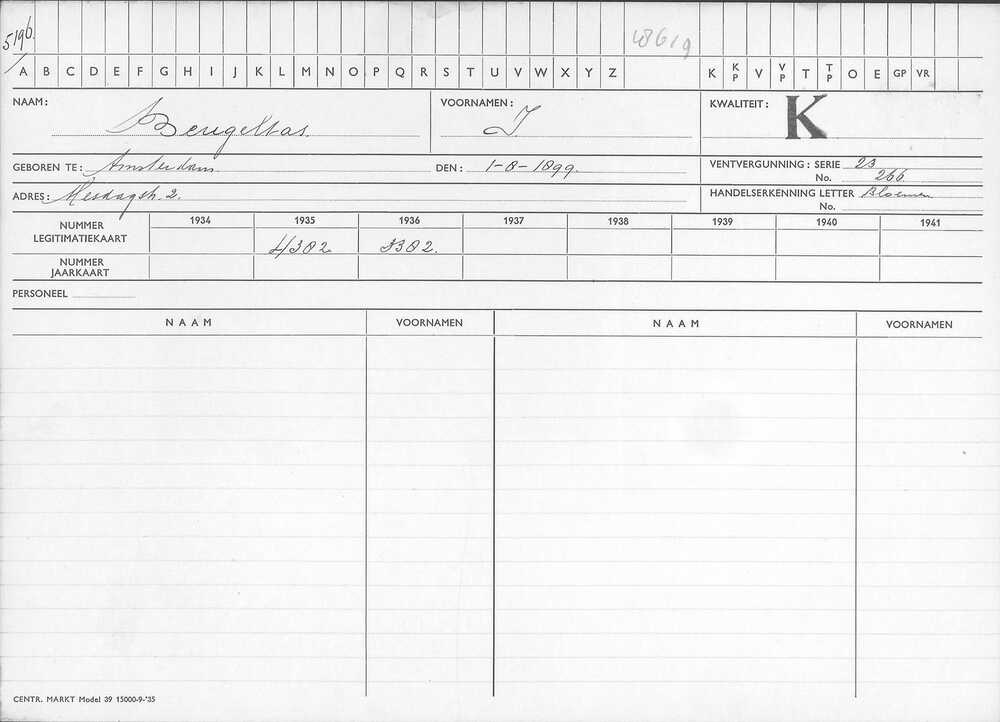 5196.
48619
A B C D E F G H I J K L M N O P Q R S T U V W X Y Z K KP V VP T TP O E GP VR
NAAM: Beugeltas. VOORNAMEN: I KWALITEIT: K
GEBOREN TE: Amsterdam. DEN: 1-8-1899. VENTVERGUNNING: SERIE 23
No. 266
ADRES: Mesdagstr. 2. HANDELSERKENNING LETTER Bloemen
No.
NUMMER LEGITIMATIEKAART 1934 1935 1936 1937 1938 1939 1940 1941
4302 3302.
NUMMER JAARKAART
PERSONEEL
NAAM VOORNAMEN NAAM VOORNAMEN
CENTR. MARKT Model 39 15000-9-'35